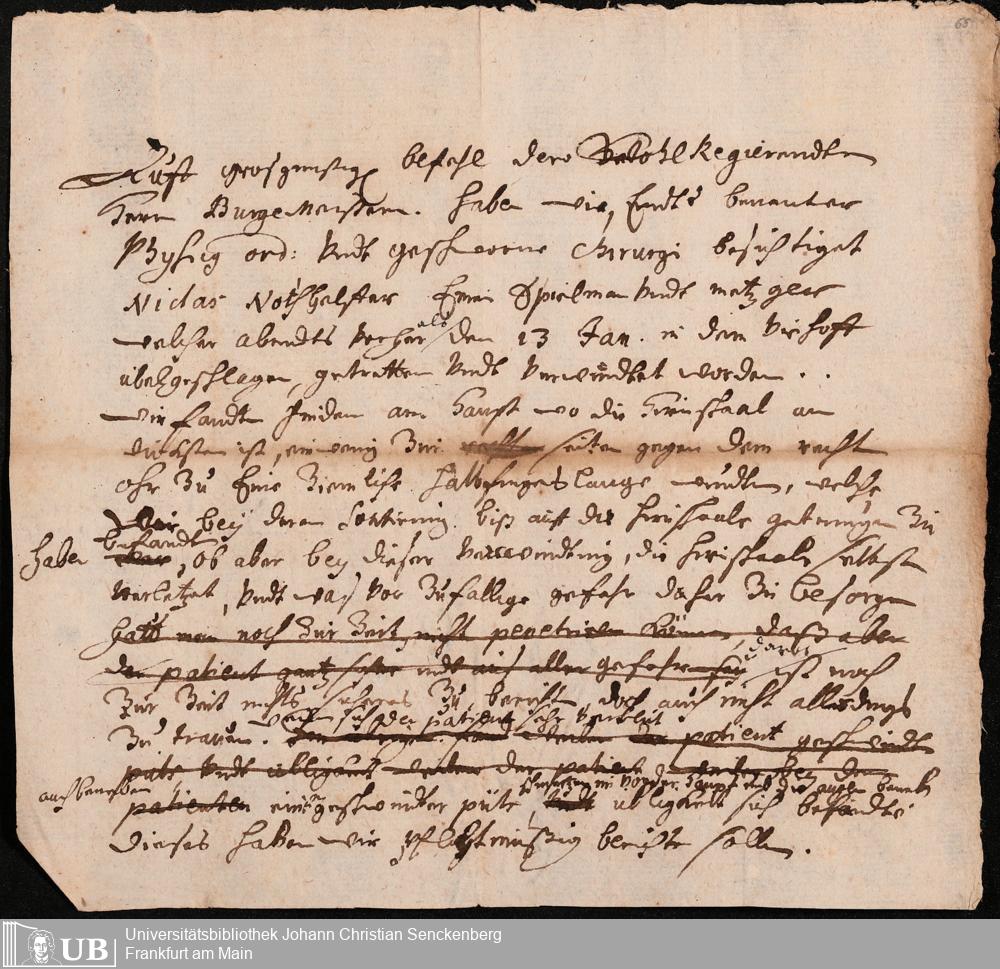 65
Auff grosgunstig befehl dero Wohl Regierendten
Herrn BurgeMeistern. haben wir, Endts benanter
Physig ord: undt geschworne Chirurgi besichtiget
Niclas Nothhelffer Einen Spielman undt metzger
welcher abendts vorher als den 13 Jan. in dem Viehoff
ubel geschlagen, getretten undt verwundtet worden ..
wir fandten an haupt wo die hirnschaal am
dicksten ist, ein wenig zur seiten gegen dem recht
ohr zu Eine Ziemliche halbfingerslange wundten, welche
wir bey deren biß auff die hirnschaale getrungen zu
haben befandt, ob aber bey dieser verwundtung, die hirnschaale selbst
verletzet, undt was vor zufallige gefahr daher zu besorgen
hatt man noch zur Zeit nicht penetriren können, daß aber
der patient gantz sicher undt aus aller gefahr sey darvon ist noch
zur Zeit nichts sicheres zu berichten, doch auch nicht allerdings
zu trauen. weilen sich der patient sehr verblut
patient geschwindt
puls undt ubligkeit weiter der patient bey dem
auch beneben patienten ein geschwinder puls schmertzen im vorder haupt undt die augen beneben
undt ubligkeit sich befandte
Dieses haben wir pflichtmäßig berichten sollen.
UB
Universitätsbibliothek Johann Christian Senckenberg
Frankfurt am Main